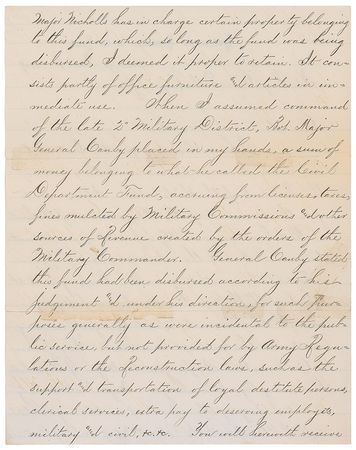 Major Nicholls has in charge certain property belonging
to this fund, which, so long as the fund was being
disbursed, I deemed it proper to retain. It con-
sists partly of office furniture &d articles in im-
mediate use. When I assumed command
of the late 2d Military District, Bvt. Major
General Canby placed in my hands, a sum of
money belonging to what he called the Civil
Department Fund, accruing from licenses, taxes,
fines mulcted by Military Commissions &d other
sources of Revenue created by the orders of the
Military Commander. General Canby stated
this fund had been disbursed according to his
judgement &d under his direction, for such pur-
poses generally as were incidental to the pub-
lic service, but not provided for by Army Regu-
lations or the Reconstruction laws, such as the
support &d transportation of loyal destitute persons,
clerical services, extra pay to deserving employés,
military &d civil, &c. &c. You will herewith receive